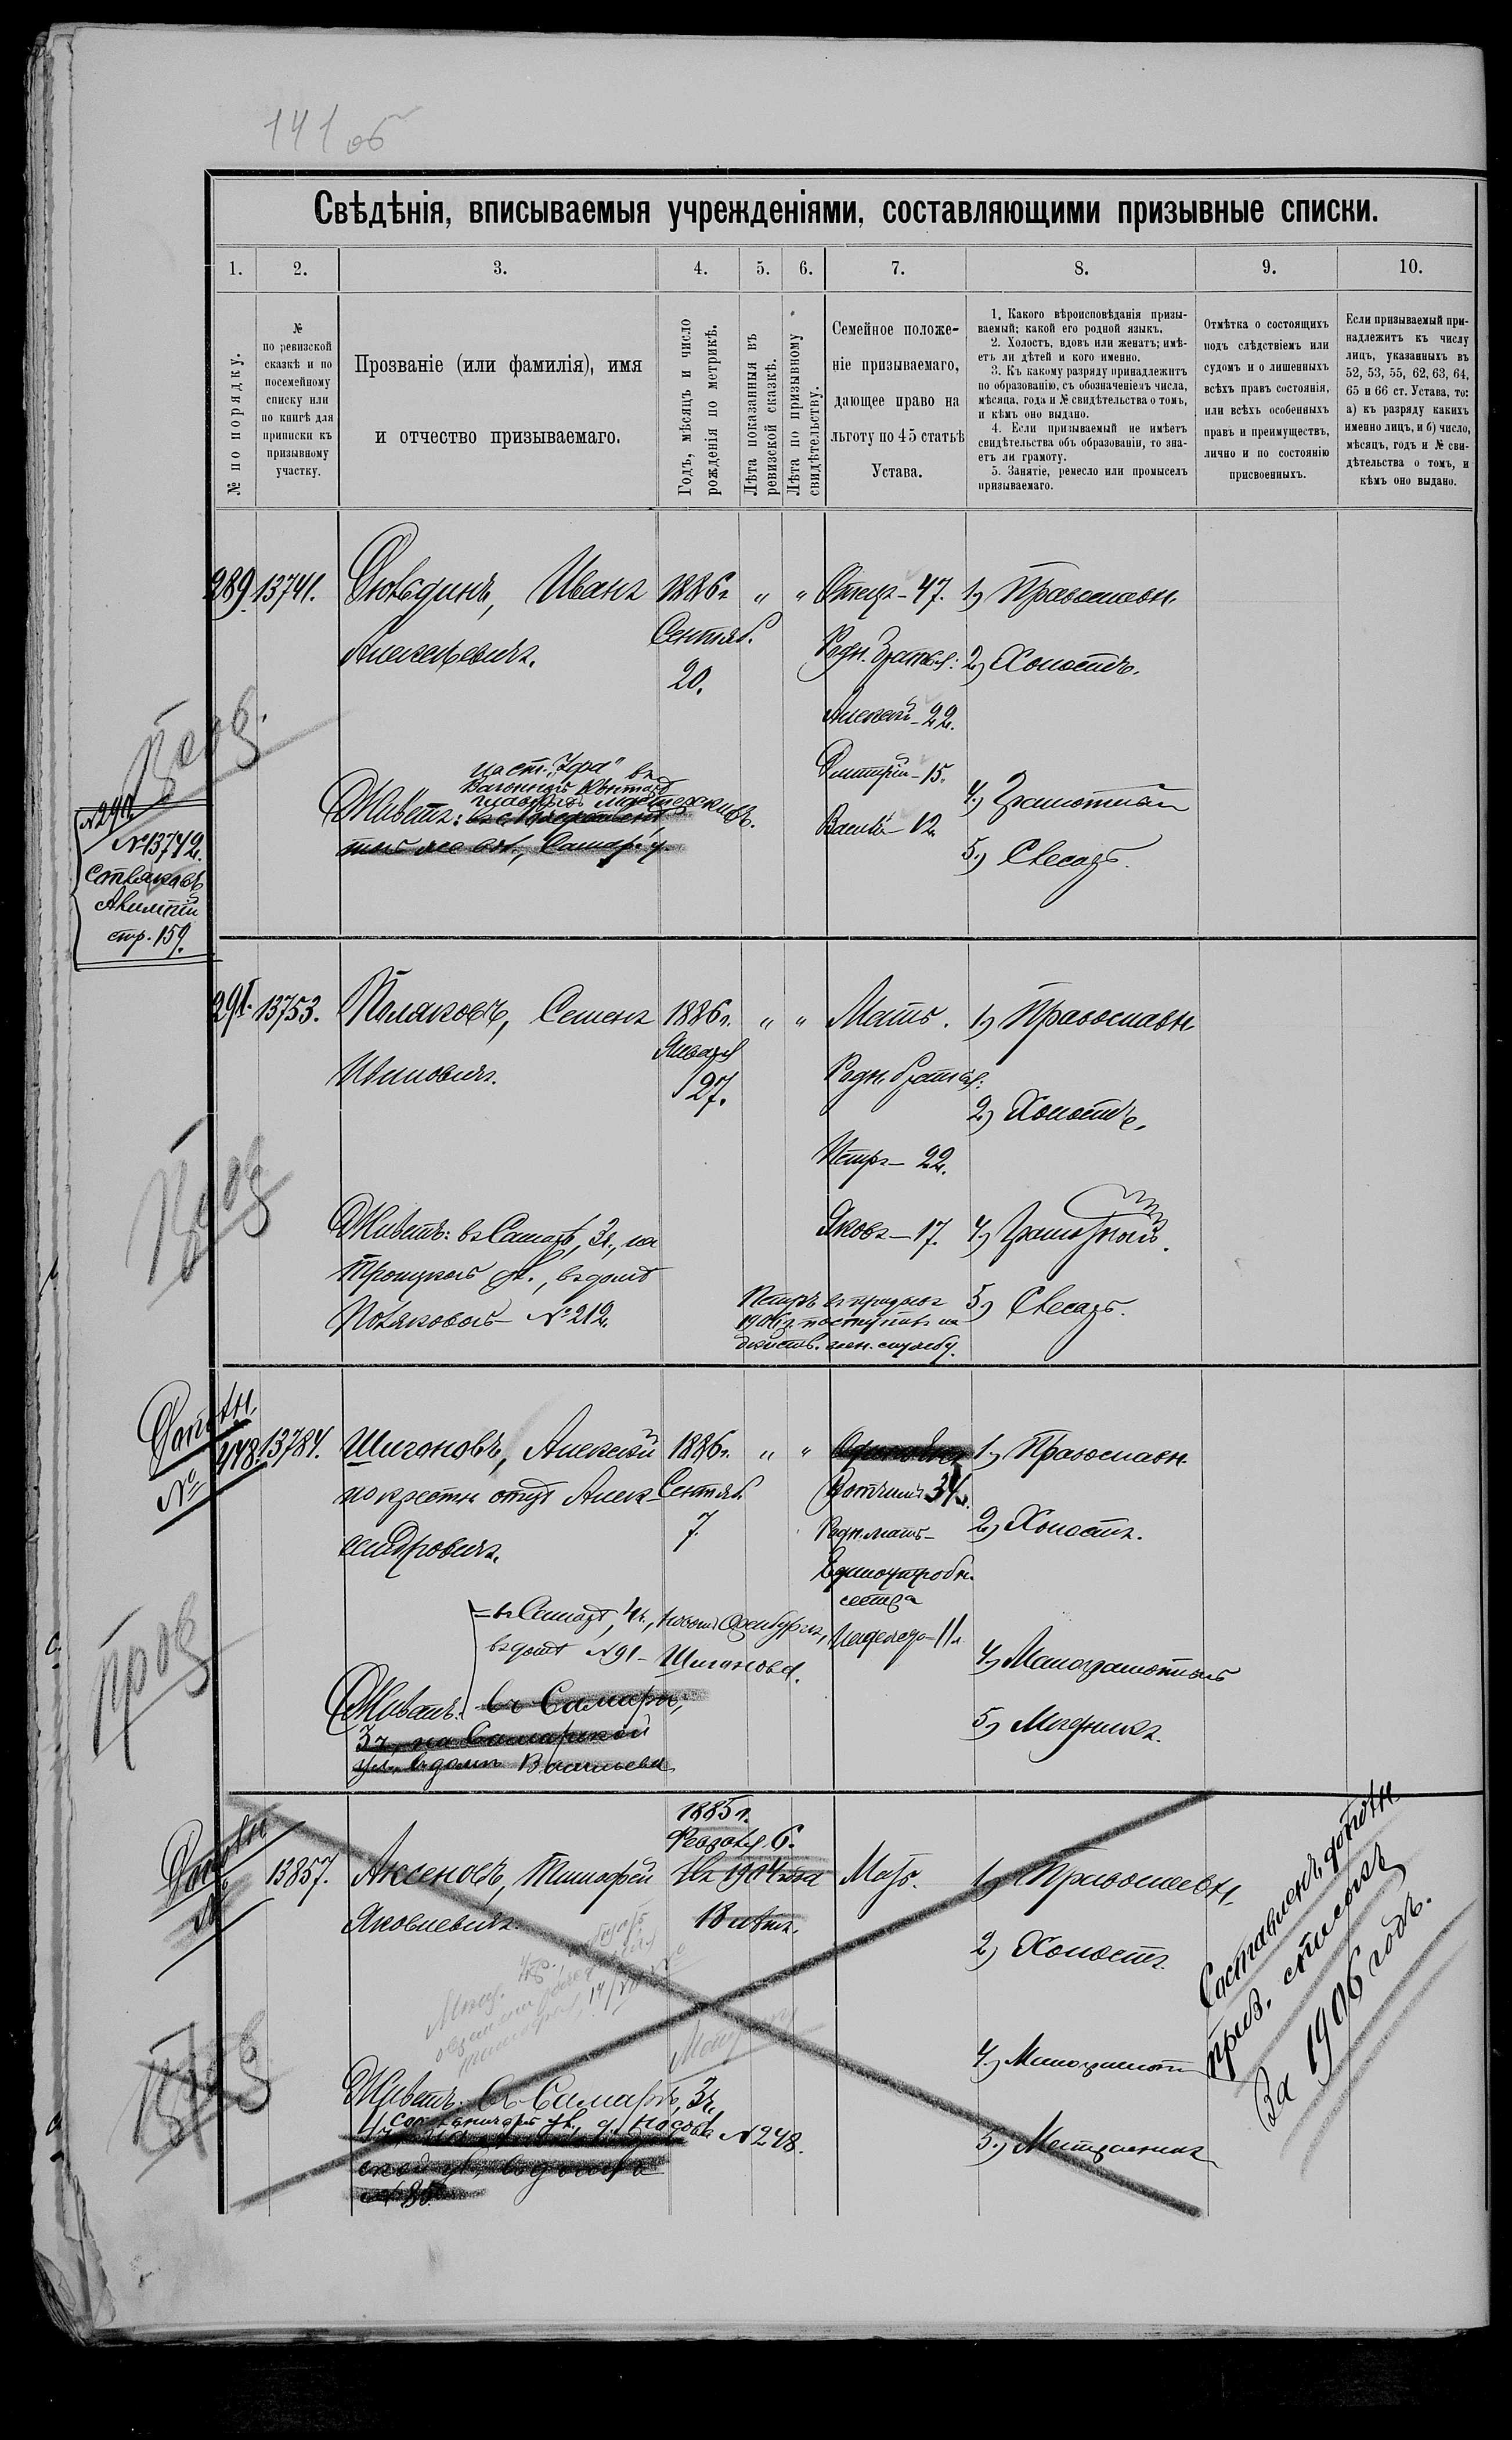 141 об
Свѣдѣнія, вписываемыя учрежденіями, составляющими призывные списки.
1. 2. 3. 4. 5. 6. 7. 8. 9. 10.
№ по порядку.
№
по ревизской
сказкѣ и по
посемейному
списку или
по книгѣ для
приписки къ
призывному
участку.
Прозваніе (или фамилія), имя
и отчество призываемаго.
Годъ, мѣсяцъ и число
рожденія по метрикѣ.
Лѣта показанныя въ
ревизской сказкѣ.
Лѣта по призывному
свидѣтельству.
Семейное положе-
ніе призываемаго,
дающее право на
льготу по 45 статьѣ
Устава.
1. Какого вѣроисповѣданія призы-
ваемый; какой его родной языкъ.
2. Холостъ, вдовъ или женатъ; имѣ-
етъ ли дѣтей и кого именно.
3. Къ какому разряду принадлежитъ
по образованію, съ обозначеніемъ числа,
мѣсяца, года и № свидѣтельства о томъ,
и кѣмъ оно выдано.
4. Если призываемый не имѣетъ
свидѣтельства объ образованіи, то зна-
етъ ли грамоту.
5. Занятіе, ремесло или промыселъ
призываемаго.
Отмѣтка о состоящихъ
подъ слѣдствіемъ или
судомъ и о лишенныхъ
всѣхъ правъ состоянія,
или всѣхъ особенныхъ
правъ и преимуществъ,
лично и по состоянію
присвоенныхъ.
Если призываемый при-
надлежитъ къ числу
лицъ, указанныхъ въ
52, 53, 55, 62, 63, 64,
65 и 66 ст. Устава, то:
а) къ разряду какихъ
именно лицъ, и б) число,
мѣсяцъ, годъ и № сви-
дѣтельства о томъ, и
кѣмъ оно выдано.
289. 13741. Иванъ 1886 г. " " Отецъ - 47. 1) Православн.
Алексѣевичъ. Сентяб. Родн. братья: 2) Холостъ.
20.
Алексѣй - 22.
Дмитрій - 15.
Василій - 12.
4) Грамотный
5) Слесарь.
на ст. "Уфа" въ
Живетъ:
№ 290
№ 13742.
стр. 159.
291. 13753. Поляковъ, Семенъ 1886 г. " " Мать. 1) Православн.
Января
27.
Родн. братья:
2) Холостъ.
Петръ - 22.
Яковъ - 17. 4) Грамотный.
5) Слесарь.
Живетъ: въ Самарѣ, 3 ч., на
Троицкой ул., въ домѣ
Полякова № 212.
Петръ въ призывъ
1905 г. поступилъ на
дѣйств. воен. службу.
Дополн.
№ 448. 13784. Шигоновъ, Алексѣй 1886 г. " " 1) Православн.
по крестн. отцу Алек-
сандровичъ.
Сентяб.
7
Вотчимъ 34.
Родн. мать
Единоутробн.
сестра
Надежда - 11 л.
2) Холостъ.
4) Малограмотный
5) Мѣдникъ.
въ Самарѣ, 4 ч.,
въ домѣ № 91 - Шигонова.
Живетъ: въ Самарѣ,
3 ч., на Самарской
ул., въ домѣ Васильева
Дополн.
№
13857. Аксеновъ, Тимофей
Яковлевичъ.
1885 г.
Февраля 6.
Въ 1904 года
18 лѣтъ.
Мать.
1) Православн.
2) Холостъ.
4) Малограмотн.
Живетъ: въ Самарѣ, 3 ч.,
№ 248.
Составленъ дополн.
приз. списокъ
за 1906 годъ.